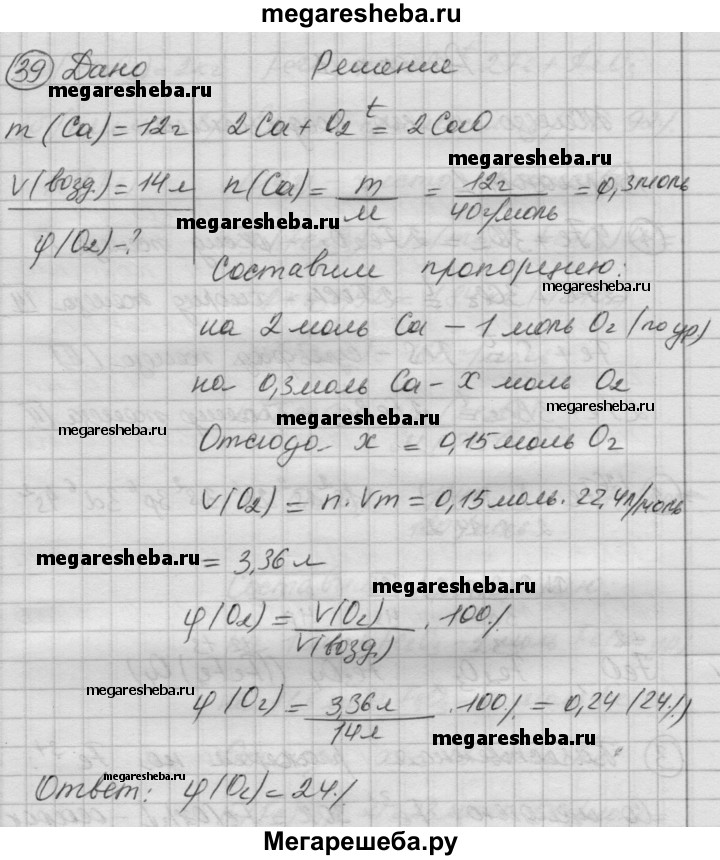 megaresheba.ru
39 Дано Решение
megaresheba.ru megaresheba.ru
m(Ca)=12г 2Ca+O2 t= 2CaO
V(возд.)=14л n(Ca)= m/M = 12г/40г/моль = 0,3моль
megaresheba.ru
megaresheba.ru
φ(O2)-?
Составим пропорцию:
megaresheba.ru
на 2 моль Ca – 1 моль O2 (по ур)
на 0,3моль Ca – x моль O2
megaresheba.ru
megaresheba.ru megaresheba.ru
Отсюда x = 0,15моль O2
V(O2) = n·Vm = 0,15моль·22,4л/моль
megaresheba.ru = 3,36л
megaresheba.ru
φ(O2) = V(O2)/V(возд.) · 100%
megaresheba.ru
φ(O2) = 3,36л/14л · 100% = 0,24 (24%)
megaresheba.ru
megaresheba.ru
Ответ: φ(O2)=24%
megaresheba.ru
Мегарешеба.ру